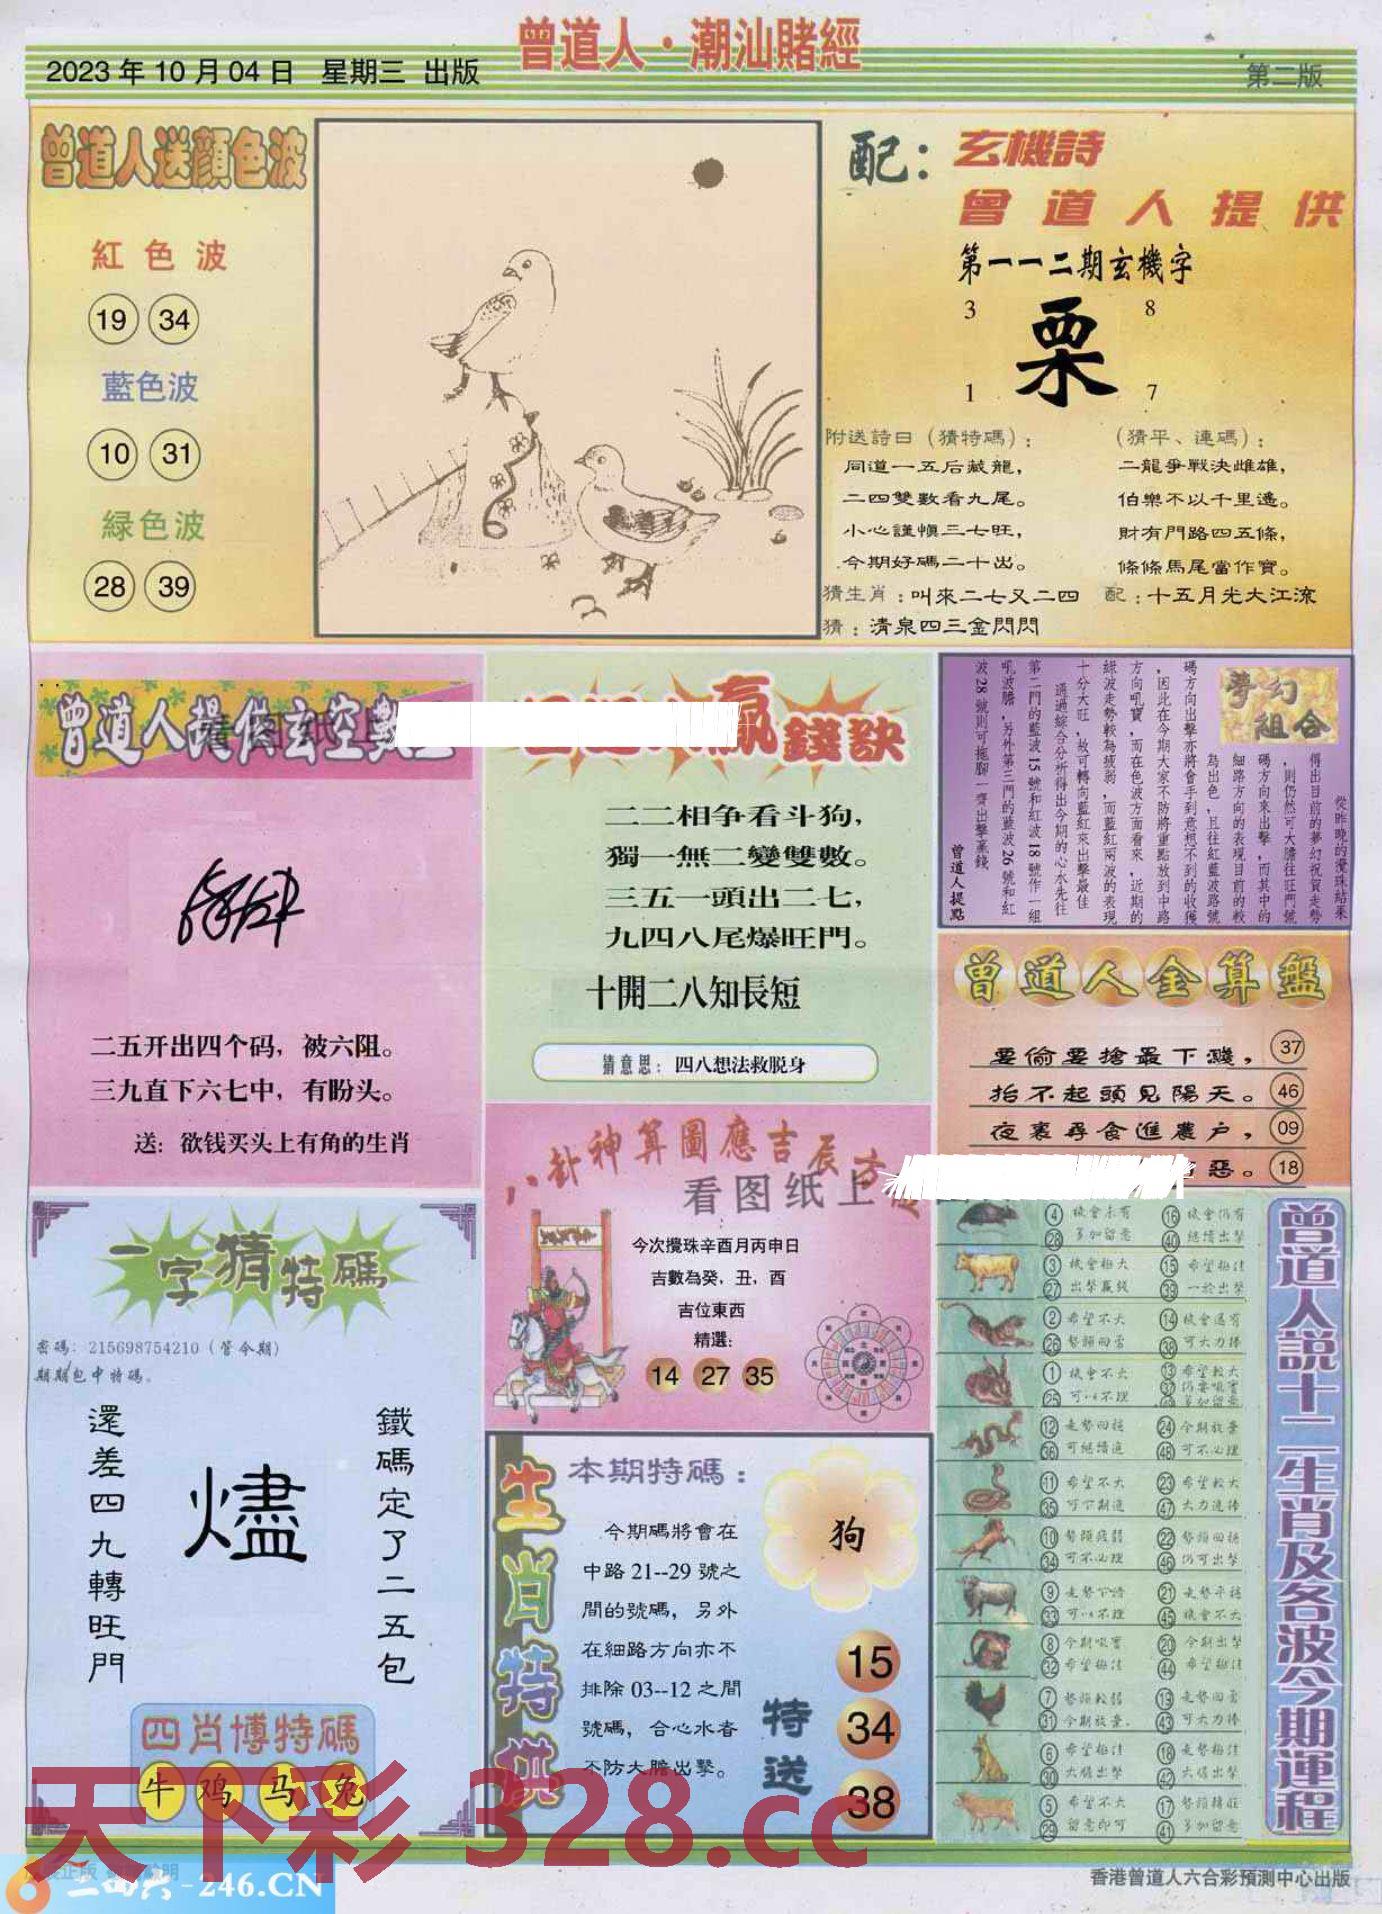 曾道人·潮汕賭經
2023年10月04日 星期三 出版
第二版
曾道人送顏色波
紅色波
19 34
藍色波
10 31
緑色波
28 39
配：玄機詩
曾道人提供
第一一二期玄機字
3 8
栗
1 7
附送詩日（猜特碼）：
同道一五后藏龍，
二四雙數看九尾。
小心謹慎三七旺，
今期好碼二十出。
（猜平、連碼）：
二龍爭戰決雌雄，
伯樂不以千里遙。
財有門路四五條，
條條馬尾當作寶。
猜生肖：叫來二七又二四
配：十五月光大江流
猜：清泉四三金閃閃
曾道人提供玄空數
二五开出四个码，被六阻。
三九直下六七中，有盼头。
送：欲钱买头上有角的生肖
赢錢訣
二二相争看斗狗，
獨一無二變雙數。
三五一頭出二七，
九四八尾爆旺門。
十開二八知長短
猜意思：四八想法救脱身
夢幻組合
從昨晚的攪珠結果
得出目前的夢幻祝賀走勢
，則仍然可大膽往旺門號
碼方向來出擊，而其中的
細路方向的表現目前的較
為出色，且往紅藍波路號
碼方向出擊亦將會手到意想不到的收獲
，因此在今期大家不防將重點放到中路
方向吼寶，而在色波方面看來，近期的
綠波走勢較為疲弱，而藍紅兩波的表現
十分大旺，故可轉向藍紅來出擊最佳
通過綜合分析得出今期的心水先往
第二門的藍波15號和紅波18號作一組
吼波膽，另外第三門的藍波26號和紅
波28號則可拖腳一齊出擊贏錢
曾道人提點
曾道人金算盤
要偷要搶最下濺， 37
抬不起頭見陽天。 46
夜裏尋食進農户， 09
惡。 18
八卦神算圖應吉辰方位
看图纸上
今次攪珠辛酉月丙申日
吉數為癸，丑，酉
吉位東西
精選：
14 27 35
一字猜特碼
密碼：215698754210（管今期）
期期包中特碼。
鐵碼定了二五包
燼
還差四九轉旺門
四肖博特碼
牛 鸡 马 兔
生肖特供
本期特碼：
今期碼將會在
中路21--29號之
間的號碼，另外
在細路方向亦不
排除03--12之間
號碼，合心水者
不防大膽出擊。
狗
特送
15
34
38
曾道人説十二生肖及各波今期運程
4 機會未有 16 機會仍有
28 多加留意 40 繼續出擊
3 機會極大 15 希望極佳
27 出擊贏錢 39 一於出擊
2 希望不大 14 機會還有
26 勢頭回落 38 可大力捧
1 機會不大 13 希望較大
25 可以不理 37
12 走勢回穩 24 今期放棄
36 可繼續追 48 可不必理
11 希望不大 23 希望較大
35 可下期追 47 大力追捧
10 勢頭疲弱 22 勢頭回穩
34 可不必理 46 仍可出擊
9 21 走勢平穩
33 可以不理 45 機會不大
8 今期吼寶 20 今期出擊
32 希望極佳 44 希望極佳
7 勢頭較弱 19
31 今期放棄 43 可大力捧
6 希望極佳 18 走勢極佳
30 大膽出擊 42 大膽出擊
5 希望不大 17 勢頭轉旺
29 留意即可 41 多加留意
天下彩 328.cc
二四六-246.CN
香港曾道人六合彩預測中心出版